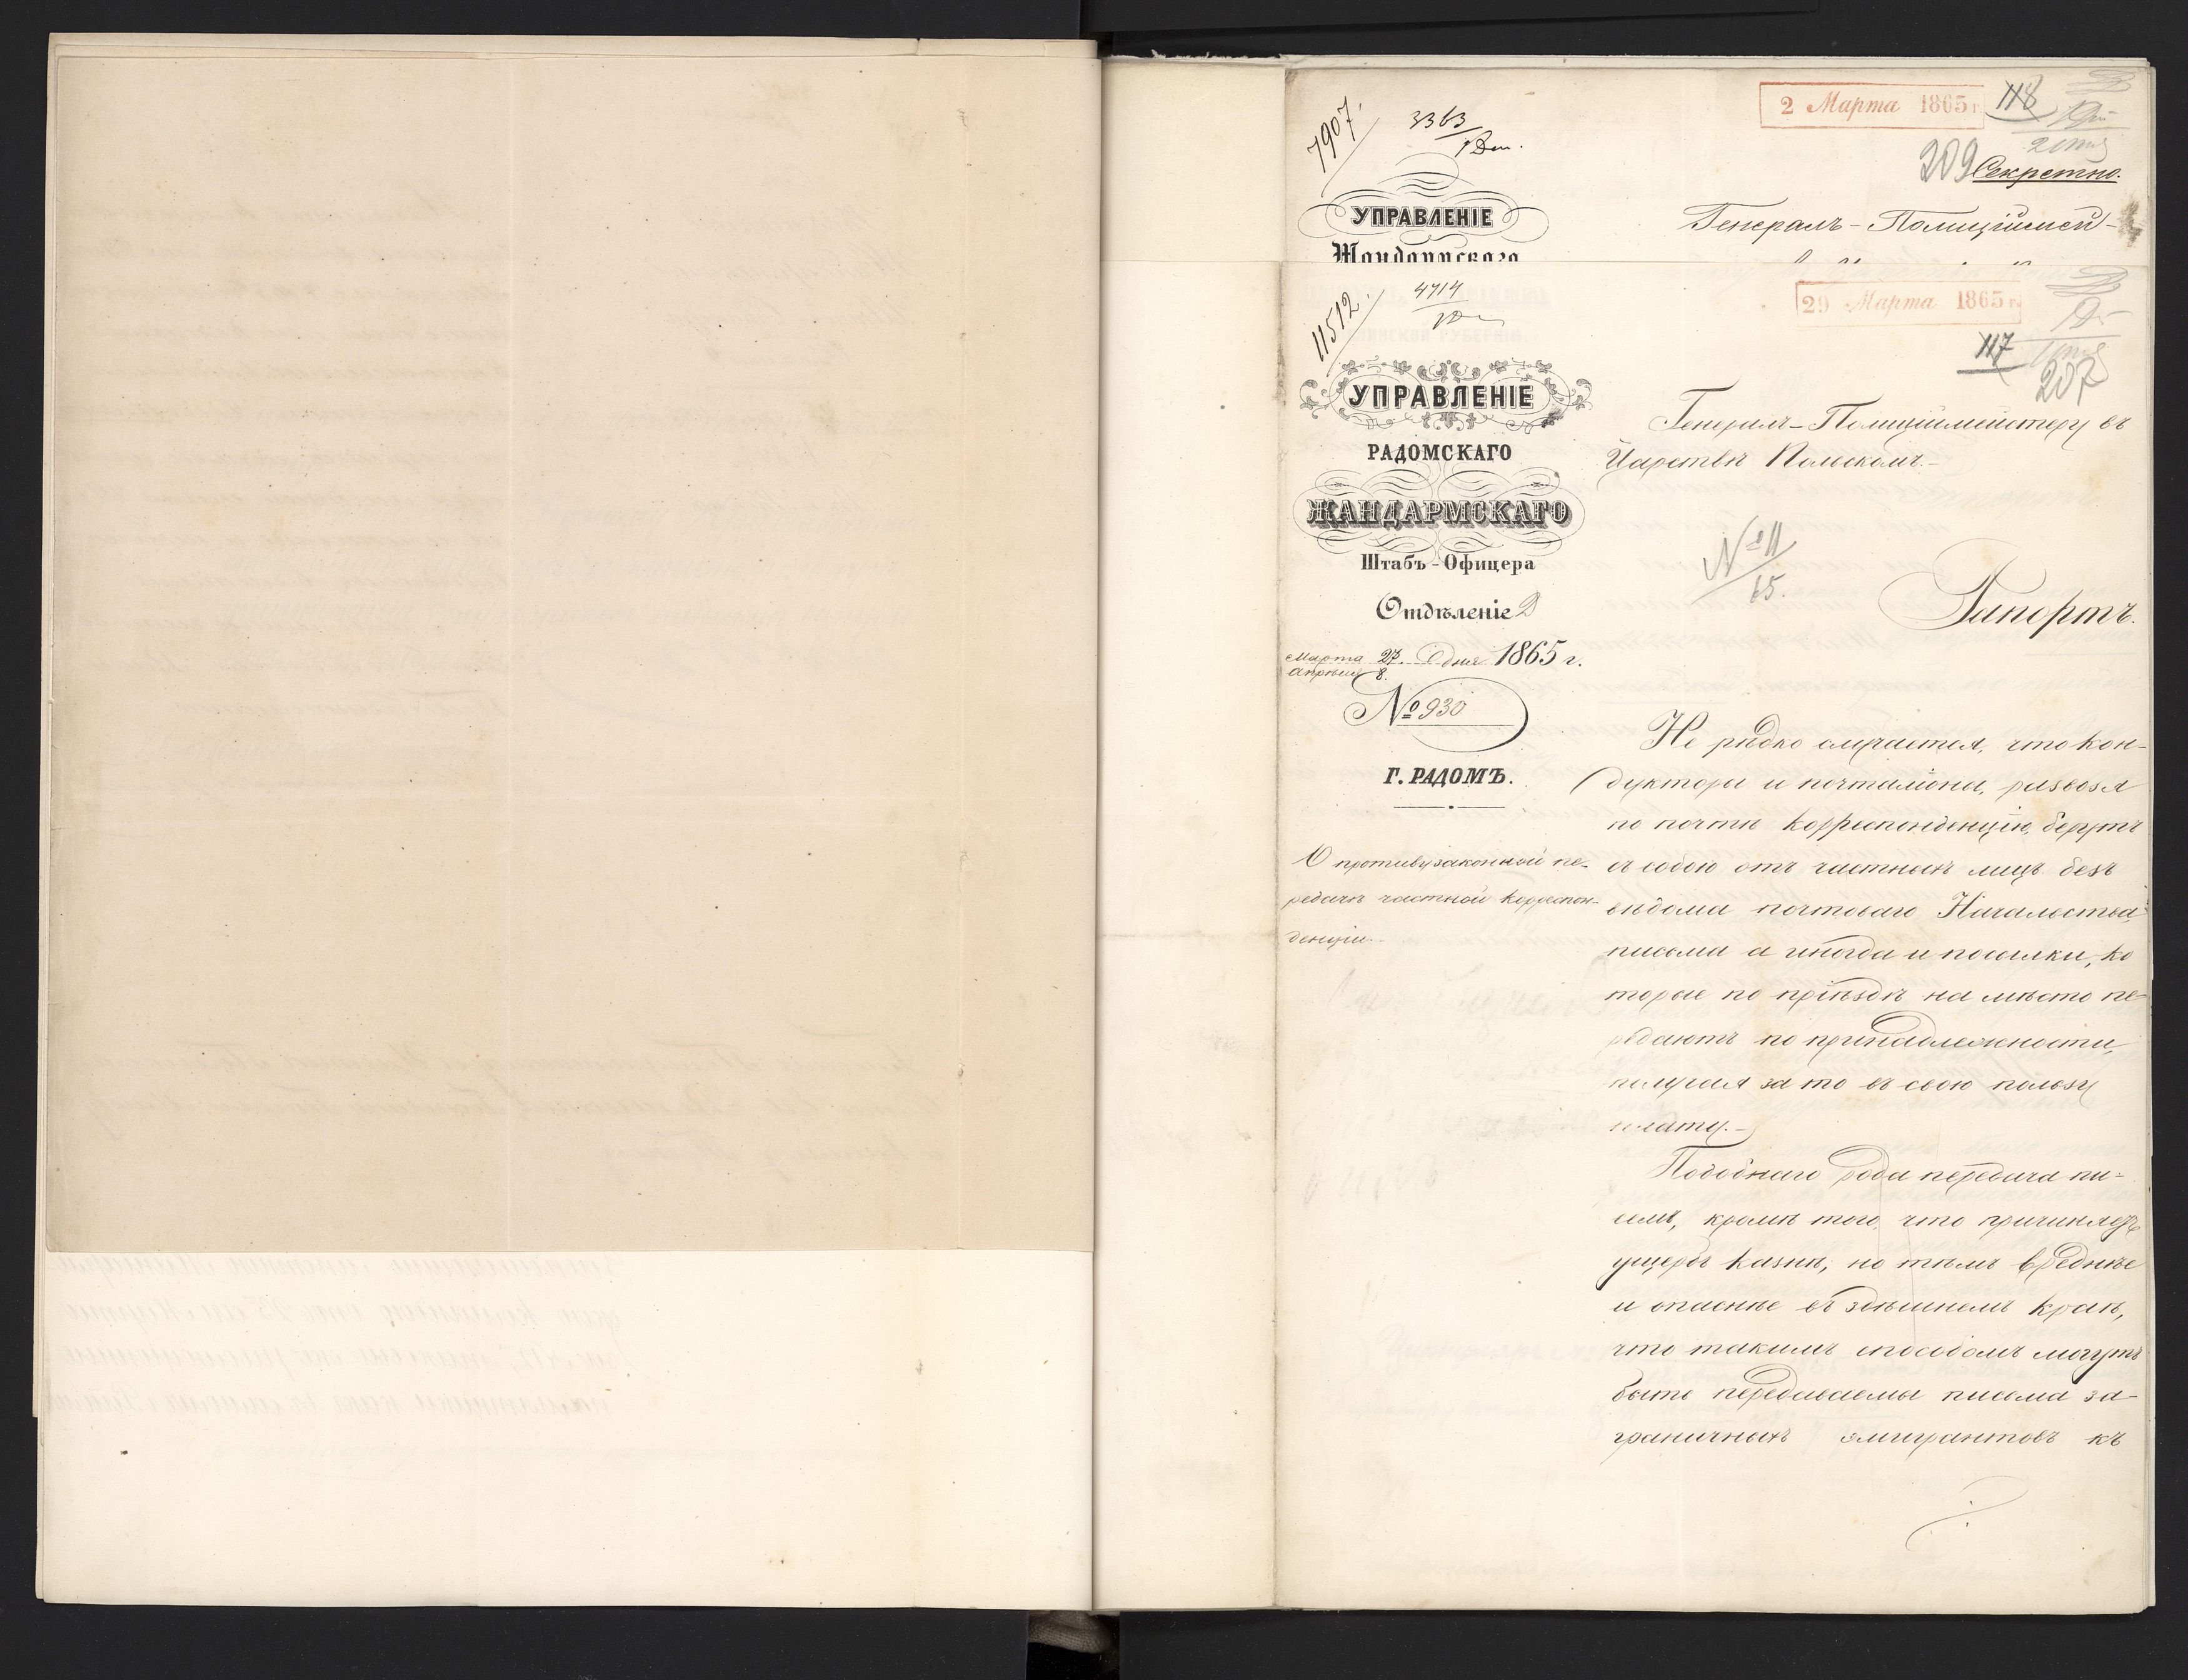 7907
3363
2 Марта 1865 г.
118
209
Секретно.
УПРАВЛЕНІЕ
Жандармскаго
Генералъ-Полиціймей-
11512
4714
29 Марта 1865 г.
117
207
УПРАВЛЕНІЕ
РАДОМСКАГО
ЖАНДАРМСКАГО
Штабъ-Офицера
Отдѣленіе
Марта 27. дня 1865 г.
Апрѣля 8.
№ 930
Г. РАДОМЪ.
О противузаконной пе-
редачѣ частной корреспон-
денціи.
Генералъ-Полиціймейстеру въ
Царствѣ Польскомъ.
№ 11
65.
Рапортъ.
Не рѣдко случается, что кон-
дукторы и почталіоны, развозя
по почтѣ корреспонденцію, берутъ
съ собою отъ частныхъ лицъ безъ
вѣдома почтоваго Начальства,
письма а иногда и посылки, ко
торые по пріѣздѣ на мѣсто пе-
редаютъ по принадлежности,
получая за то въ свою пользу
плату.-
Подобнаго рода передача пи-
семъ, кромѣ того, что причиняетъ
ущербъ казнѣ, но тѣмъ вреднѣе
и опаснѣе въ здѣшнемъ краѣ,
что такимъ способомъ могутъ
быть передаваемы письма за-
граничныхъ эмигрантовъ къ